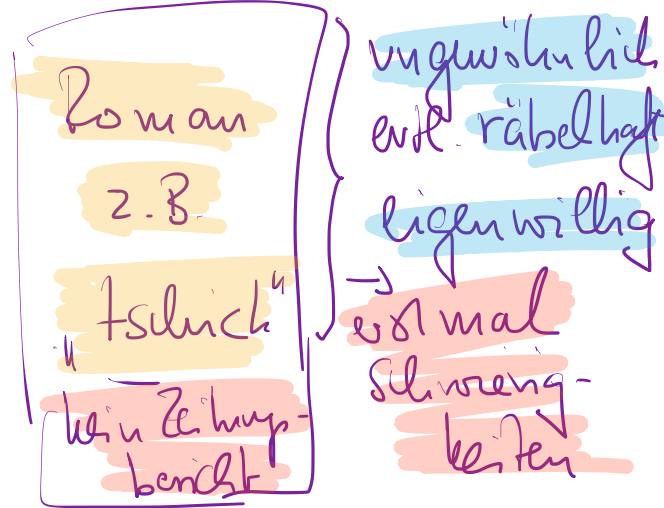 Roman
z.B.
„tschick"
kein Zeitungs-
bericht
ungewöhnlich
evtl. räbelhaft
eigenwillig
→ erstmal
Schwierig-
keiten